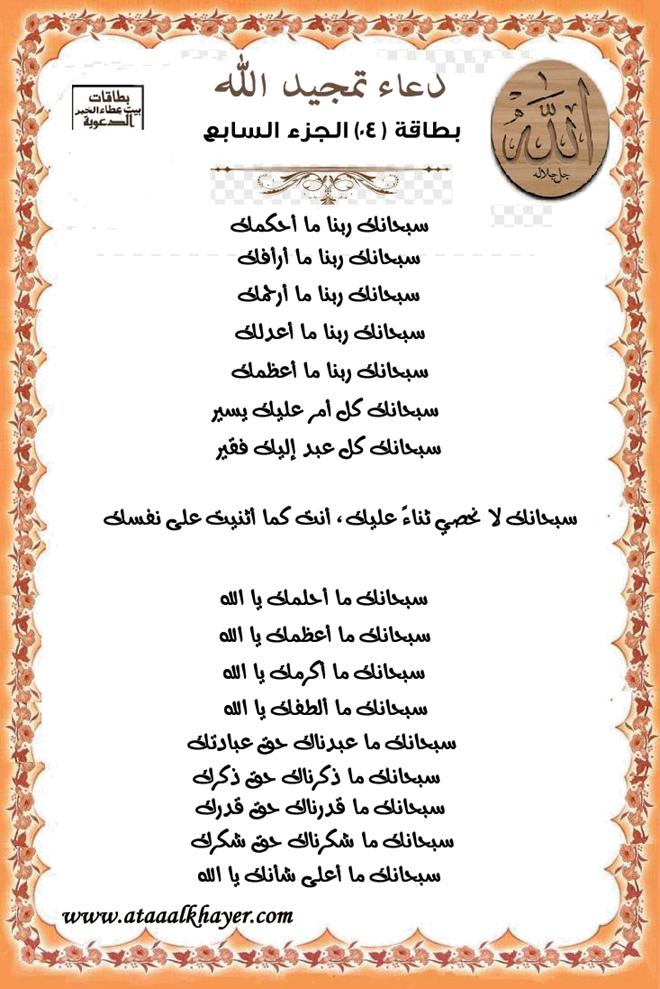 دعاء تمجيد الله
بطاقة (٠٤) الجزء السابع
بطاقات
بيت عطاء الخير
الدعوية
الله
جل جلاله
سبحانك ربنا ما أحكمك
سبحانك ربنا ما أرأفك
سبحانك ربنا ما أرحمك
سبحانك ربنا ما أعدلك
سبحانك ربنا ما أعظمك
سبحانك كل أمر عليك يسير
سبحانك كل عبد إليك فقير
سبحانك لا نحصي ثناءً عليك، أنت كما أثنيت على نفسك
سبحانك ما أحلمك يا الله
سبحانك ما أعظمك يا الله
سبحانك ما أكرمك يا الله
سبحانك ما ألطفك يا الله
سبحانك ما عبدناك حق عبادتك
سبحانك ما ذكرناك حق ذكرك
سبحانك ما قدرناك حق قدرك
سبحانك ما شكرناك حق شكرك
سبحانك ما أعلى شأنك يا الله
www.ataaalkhayer.com